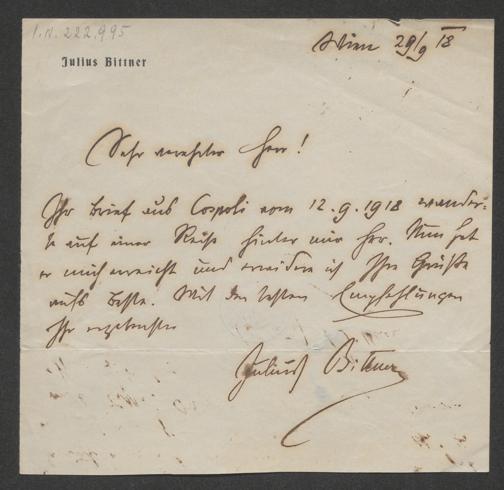 I.N. 222.995
Julius Bittner
Wien 29/9 18
Sehr verehrter Herr!
Ihr Brief aus Cospoli vom 12.9.1918 wander-
te auf einer Reise hinter mir her. Nun hat
er mich erreicht und erwidere ich Ihre Grüße
aufs beste. Mit den besten Empfehlungen
Ihr ergebenster
Julius Bittner